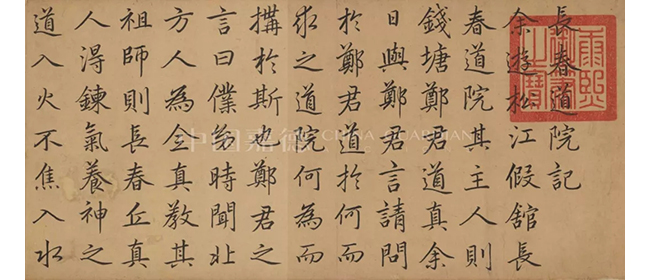 長春道院記
余遊松江假舘長
春道院其主人則
錢塘鄭君道真余
日與鄭君言請問
於鄭君道於何而
求之道院何為而
搆於斯也鄭君之
言曰僕幼時聞北
方人為全真教其
祖師則長春丘真
人淂鍊氣養神之
道入火不焦入水
中国嘉德 CHINA GUARDIAN